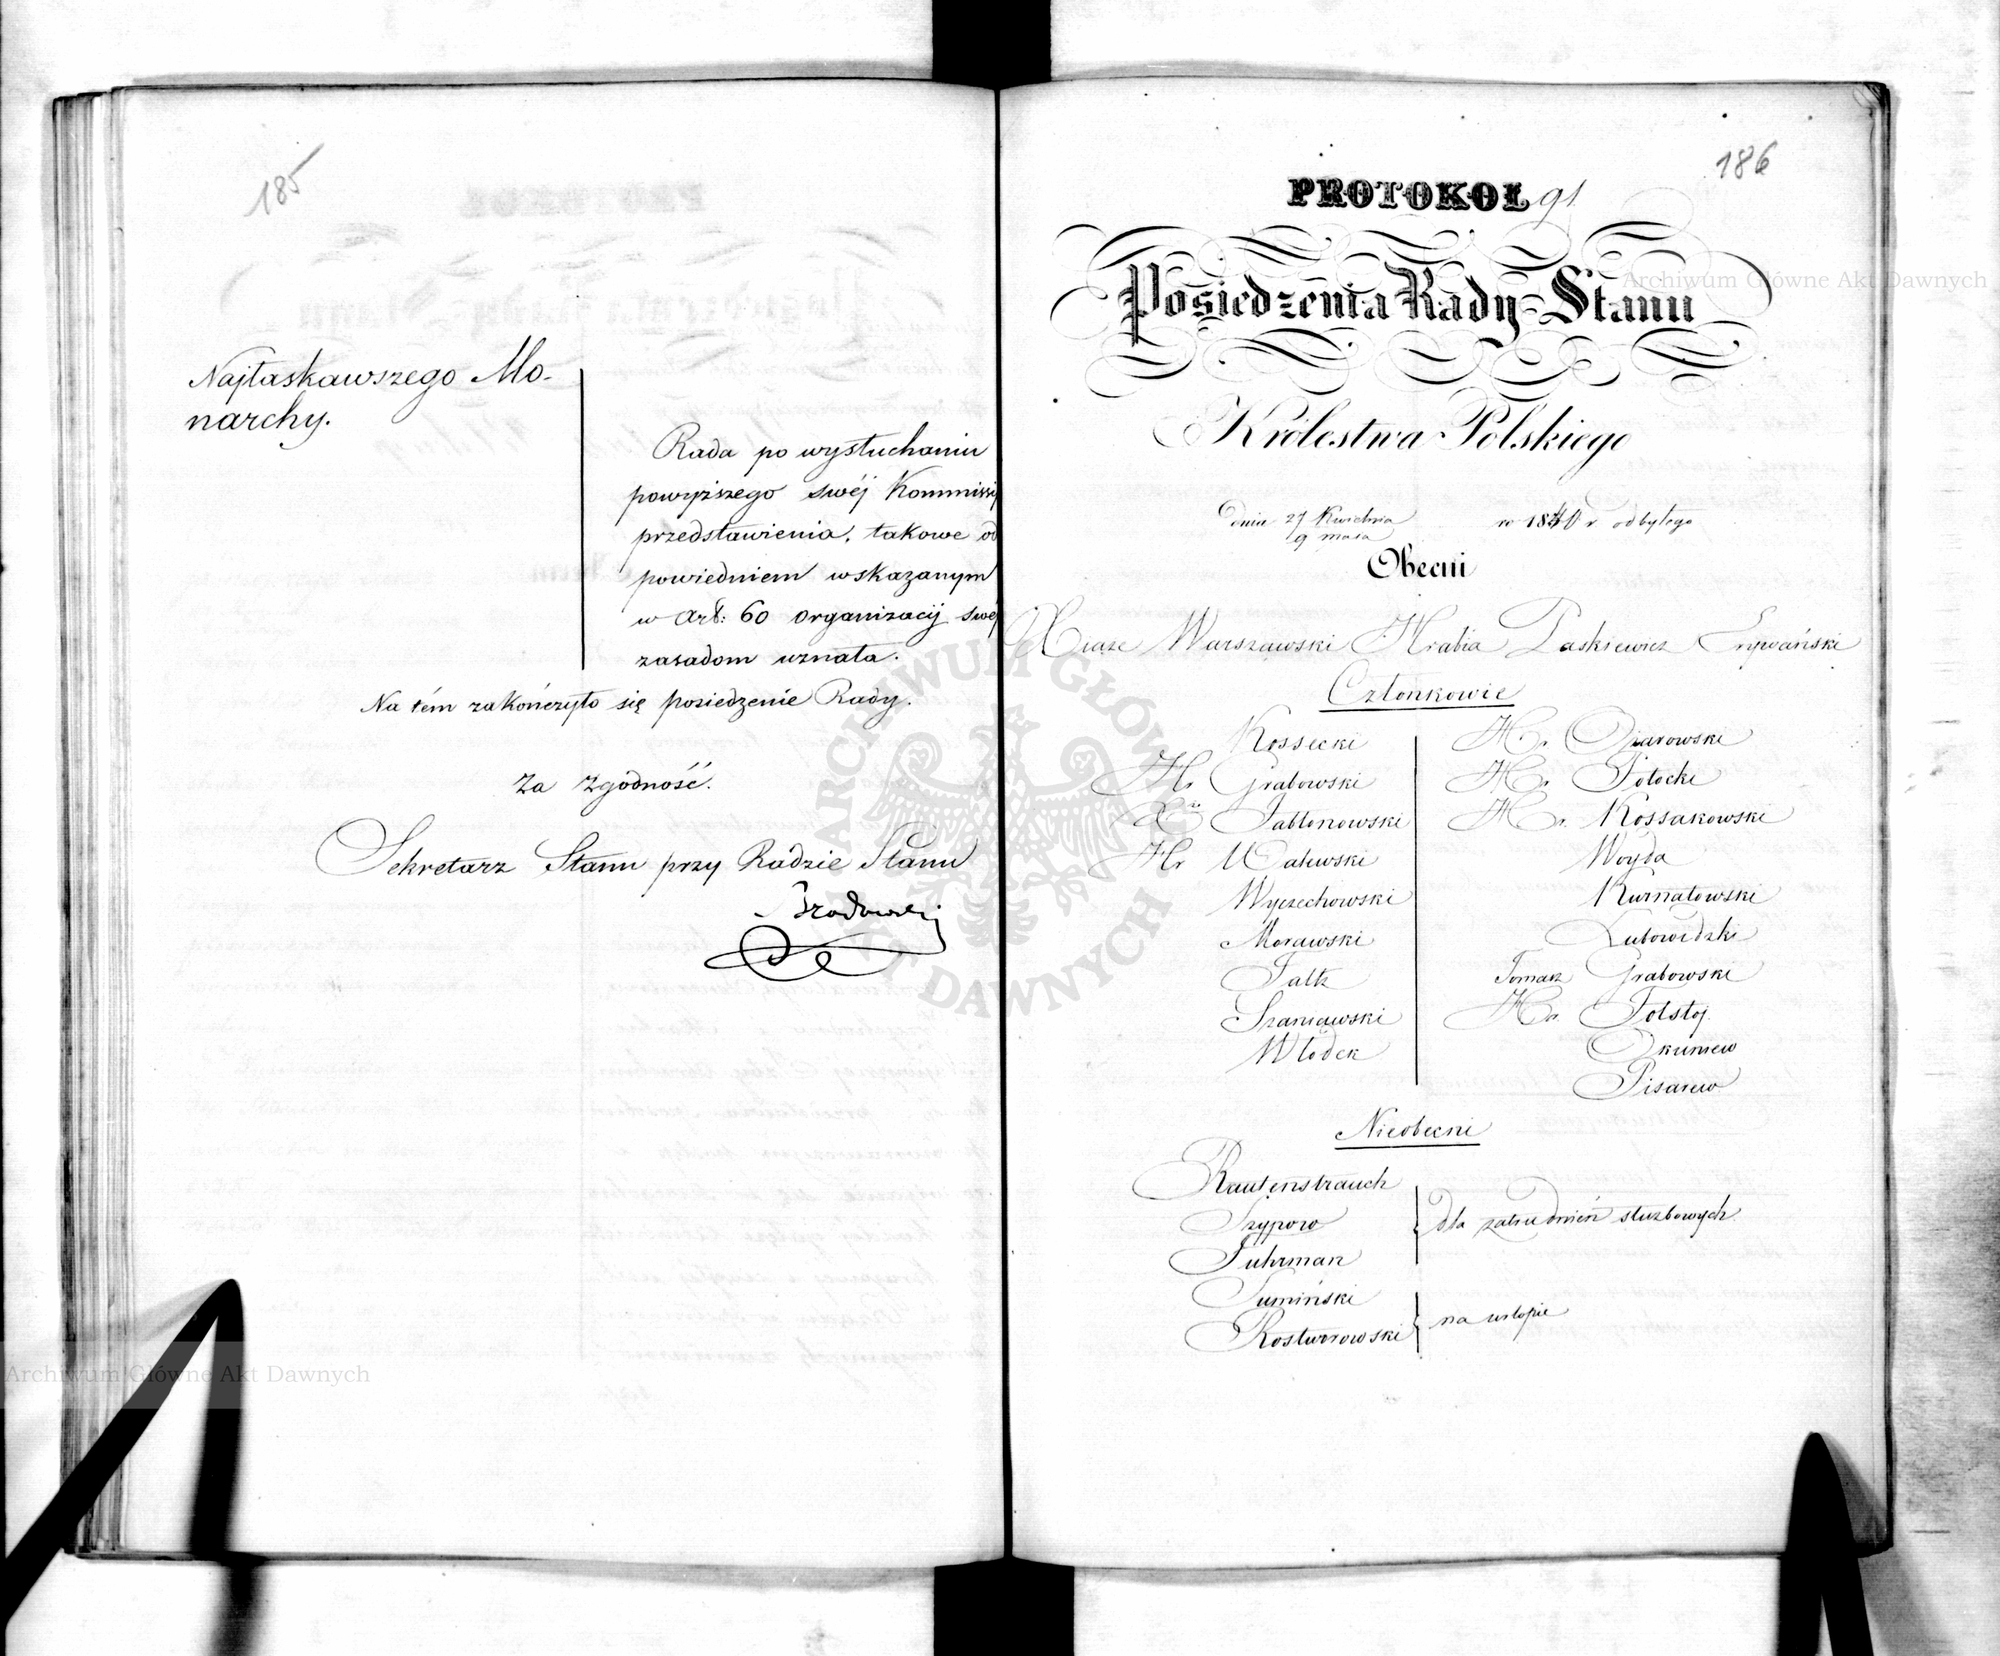 185
Najłaskawszego Mo-
narchy.
Rada po wysłuchaniu
powyższego swéj Kommissij
przedstawienia, takowe od
powiedniem wskazanym
w Art: 60 organizacij swéj
zasadom uznała.
Na tém zakończyło się posiedzenie Rady.
Za zgodność.
Sekretarz Stanu przy Radzie Stanu
186
PROTOKÓŁ 91
Posiedzenia Rady Stanu
Królestwa Polskiego
dnia 27 Kwietnia w 1840 r odbytego
9 maia
Obecni
Xiąże Warszawski Hrabia Paskiewicz Erywański
Członkowie
Kossecki
Hr Grabowski
Xże Jabłonowski
Hr Walewski
Wyczechowski
Morawski
Faltz
Szaniawski
Włodek
Hr. Ożarowski
Hr. Potocki
Hr. Kossakowski
Woyda
Kurnatowski
Lubowidzki
Tomasz Grabowski
Hr. Tołstoj
Okuniew
Pisarew
Nieobecni
Rautenstrauch
Szypow
Fuhrman
dla zatrudnień służbowych
Sumiński
Rostworowski
na urlopie
Archiwum Główne Akt Dawnych
Archiwum Główne Akt Dawnych
ARCHIWUM GŁÓWNE AKT DAWNYCH